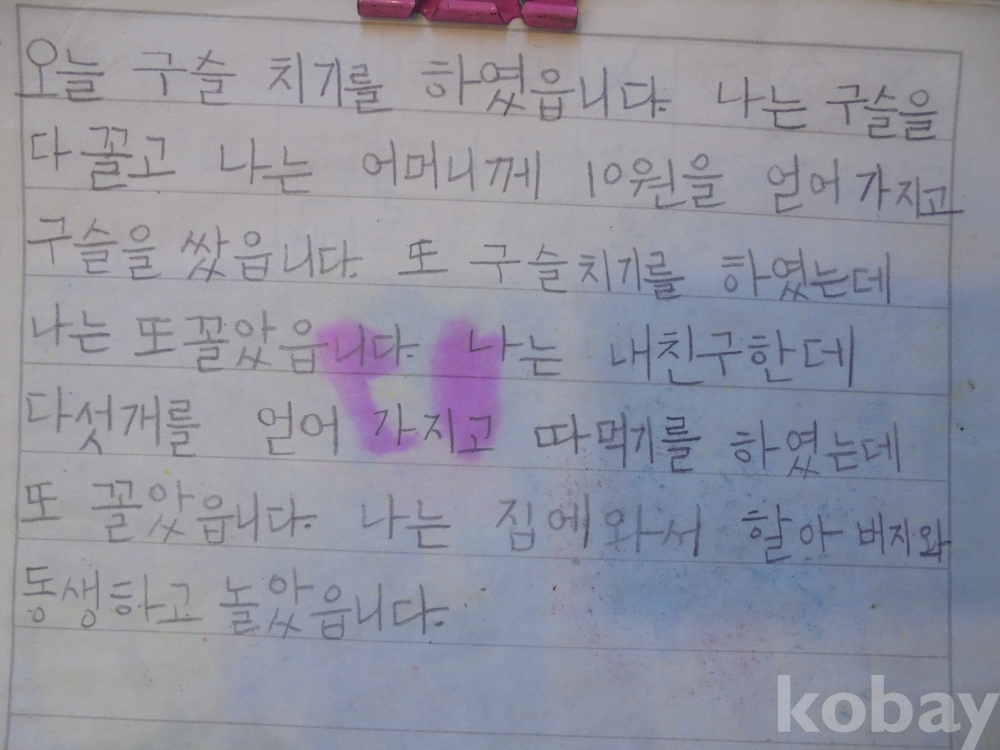 오늘 구슬 치기를 하였읍니다. 나는 구슬을
다 꼴고 나는 어머니께 10원을 얻어 가지고
구슬을 쌌읍니다. 또 구슬치기를 하였는데
나는 또 꼴았읍니다. 나는 내친구한데
다섯개를 얻어 가지고 따먹기를 하였는데
또 꼴았읍니다. 나는 집에와서 할아버지와
동생하고 놀았읍니다.
kobay